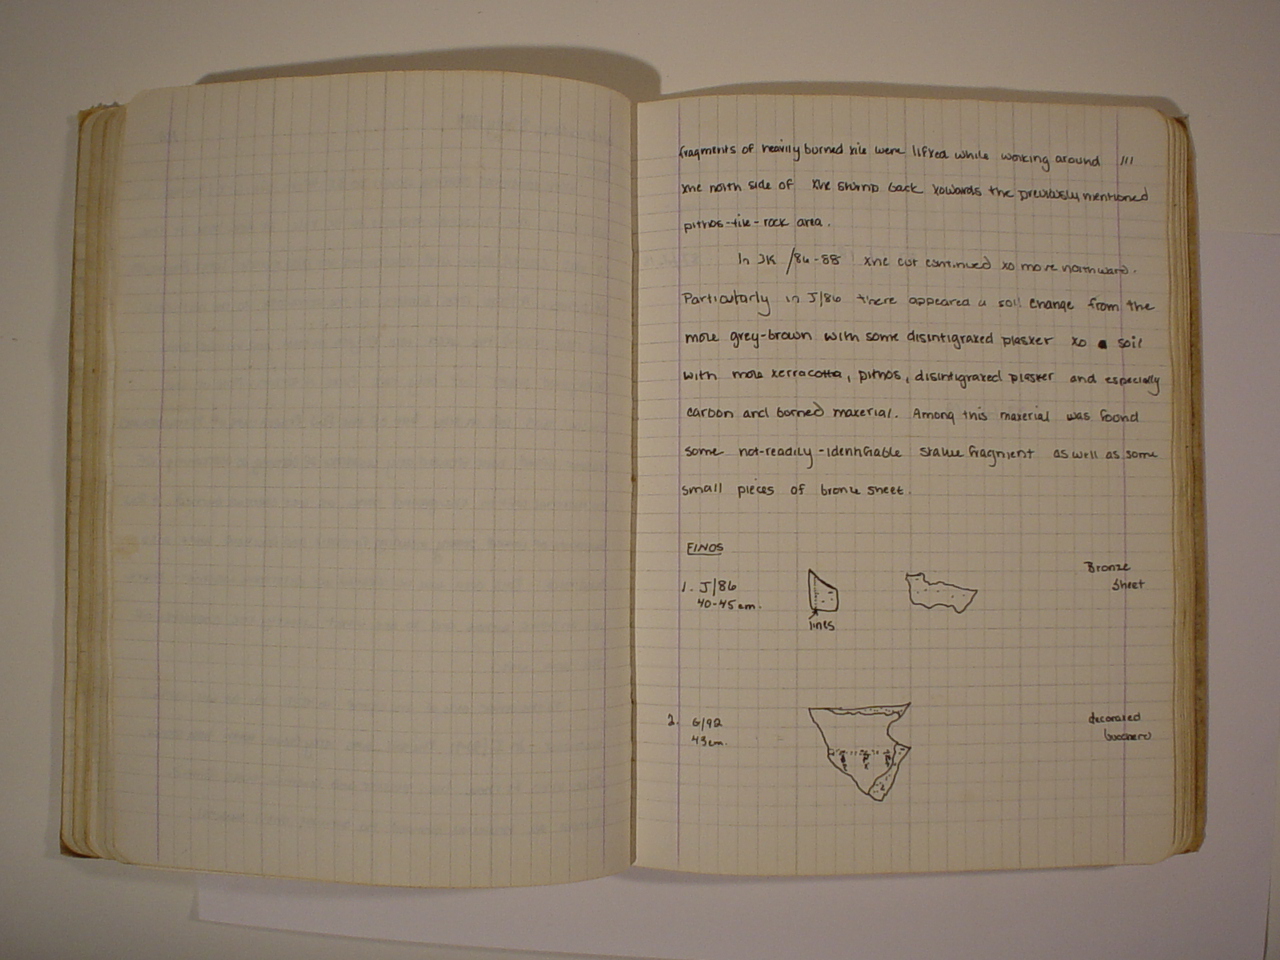 fragments of heavily burned tile were lifted while working around 111
the north side of the stump back towards the previously mentioned
pithos-tile-rock area.
In JK/86-88 the cut continued to move northward.
Particularly in J/86 there appeared a soil change from the
more grey-brown with some disintigrated plaster to a soil
with more terracotta, pithos, disintigrated plaster and especially
carbon and burned material. Among this material was found
some not-readily-identifiable statue fragment as well as some
small pieces of bronze sheet.
FINDS
1. J/86
40-45cm.
lines
Bronze
Sheet
2. G/92
43cm.
decorated
bucchero